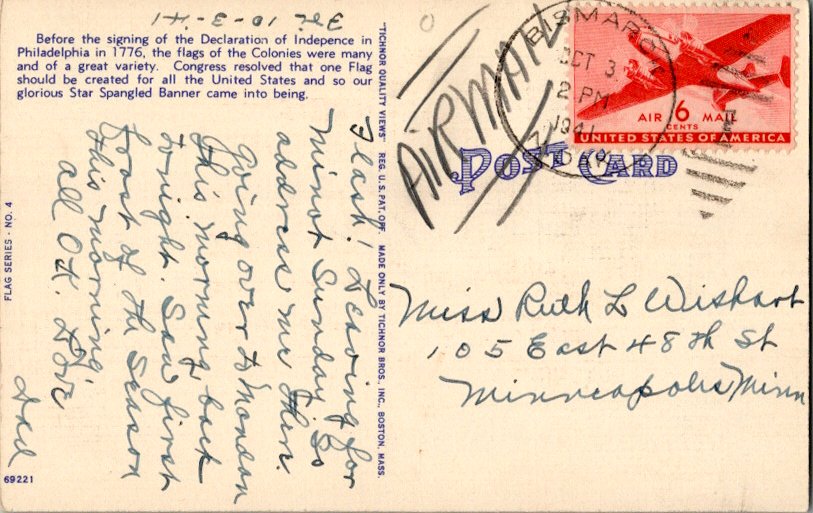 Fri 10-3-41
Before the signing of the Declaration of Indepence in
Philadelphia in 1776, the flags of the Colonies were many
and of a great variety. Congress resolved that one Flag
should be created for all the United States and so our
glorious Star Spangled Banner came into being.
Flash! Leaving for
Minot Sunday so
address me there.
Going over to Mandan
this morning back
tonight. Saw first
frost of the season
this morning.
all OK. Love
Dad
FLAG SERIES - NO. 4
69221
"TICHNOR QUALITY VIEWS" REG. U. S. PAT. OFF. MADE ONLY BY TICHNOR BROS., INC., BOSTON, MASS.
AIRMAIL
BISMARCK
OCT 3
2 PM
1941
N. DAK.
AIR 6 MAIL
CENTS
UNITED STATES OF AMERICA
POST CARD
Miss Ruth L Wishart
105 East 48th St
Minneapolis Minn